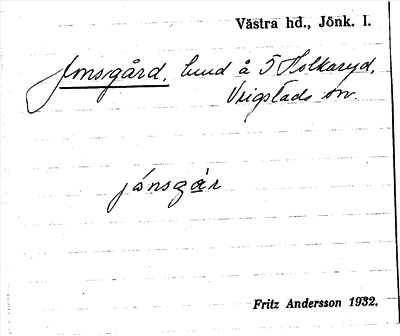 Västra hd., Jönk. l.
Jonsgård, lund å 5 Holkaryd,
Vrigstads sn.
jònsgár
Fritz Andersson 1932.